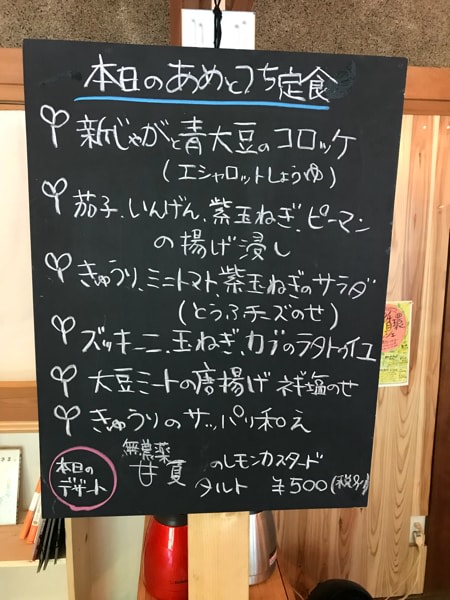 本日のあめとつち定食
新じゃがと青大豆のコロッケ
(エシャロットしょうゆ)
茄子、いんげん、紫玉ねぎ、ピーマン
の揚げ浸し
きゅうり、ミニトマト、紫玉ねぎのサラダ
(とうふチーズのせ)
ズッキーニ、玉ねぎ、カブのラタトゥイユ
大豆ミートの唐揚げ 
きゅうりのサッパリ和え
本日の
デザート
無農薬
甘夏 のレモンカスタード
タルト ¥500(税別)